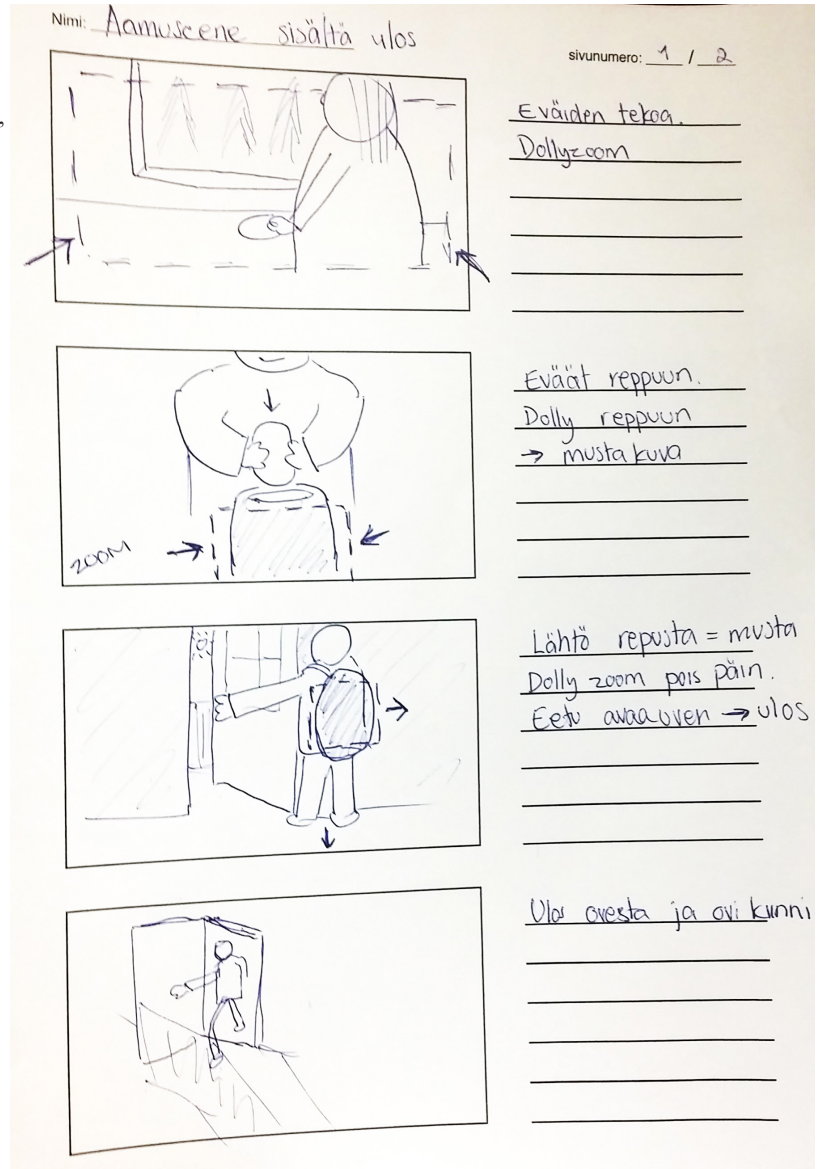 Nimi: Aamuscene sisältä ulos
sivunumero: 1 / 2
Eväiden tekoa.
Dollyzoom
Eväät reppuun.
Dolly reppuun
→ musta kuva
ZOOM
Lähtö repusta = musta
Dolly zoom pois päin.
Eetu avaa oven → ulos
Ulos ovesta ja ovi kiinni